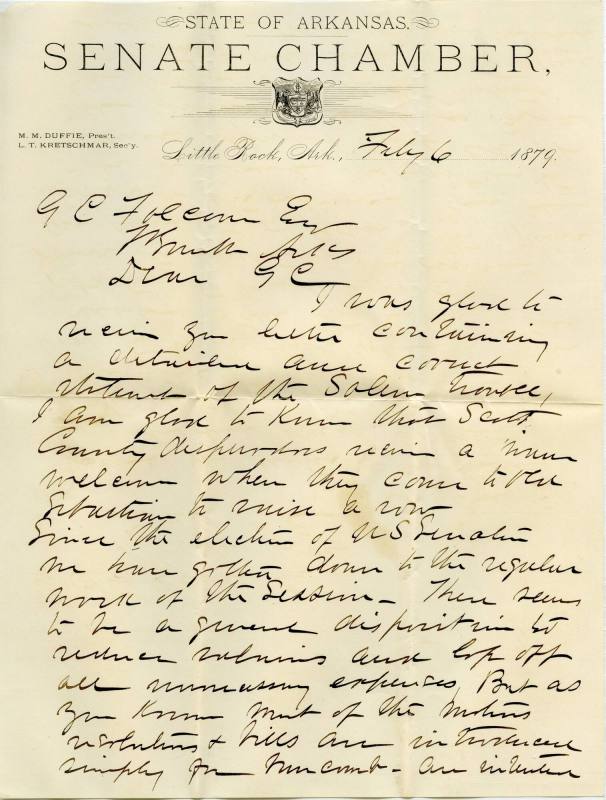 STATE OF ARKANSAS.
SENATE CHAMBER,
M. M. DUFFIE, Pres't.
L. T. KRETSCHMAR, Sec'y.
Little Rock, Ark., Feby 6 1879.
G C Folsom Esq
Ark
Dear G C
I was glad to
receive your letter containing
a detailed and correct
statement of the Salem trouble,
I am glad to know that Scott
County desperados receive a warm
welcome when they come to old
Sebastian to raise a row
Since the election of US Senator
we have gotten down to the regular
work of the Session - There seems
to be a general disposition to
reduce salaries and lop off
all unnecessary expenses, But as
you know most of the motions
resolutions & bills are introduced
simply for buncomb - are intended